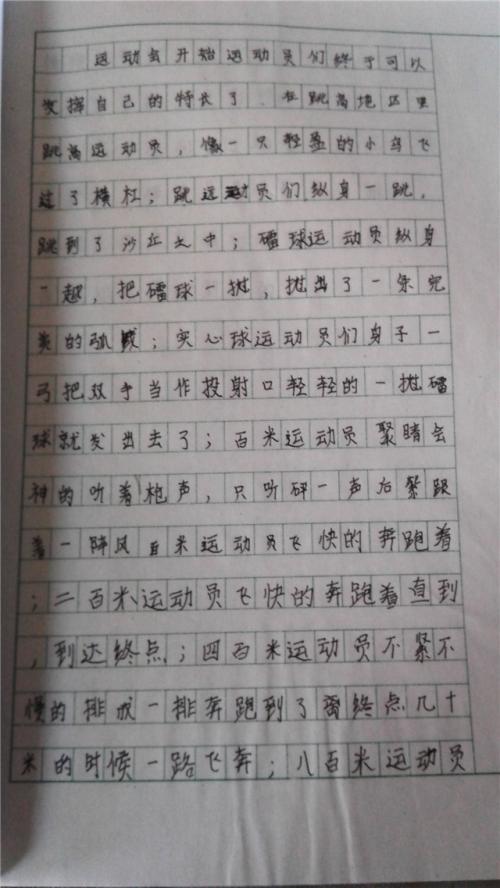 运动会开始运动员们终于可以
发挥自己的特长了.在跳高地区里
跳高运动员,像一只轻盈的小鸟飞
过了横杠;跳远运动员们纵身一跳,
跳到了沙丘之中;礌球运动员纵身
一趄,把礌球一抛,抛出了一条完
美的弧线;实心球运动员们身子一
弓把双手当作投射口轻轻的一抛礌
球就发出去了;百米运动员聚睛会
神的听着枪声,只听砰一声后紧跟
着一阵风百米运动员飞快的奔跑着
;二百米运动员飞快的奔跑着直到
,到达终点;四百米运动员不紧不
慢的排成一排奔跑到了离终点几十
米的时候一路飞奔;八百米运动员